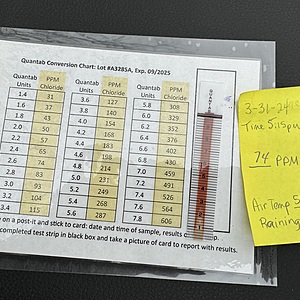 Quantab Conversion Chart: Lot #A3285A, Exp. 09/2025
Quantab Units PPM Chloride Quantab Units PPM Chloride Quantab Units PPM Chloride
1.4 31 3.6 127 5.8 308
1.6 37 3.8 140 6.0 329
1.8 43 4.0 154 6.2 352
2.0 50 4.2 168 6.4 376
2.2 57 4.4 183 6.6 402
2.4 65 4.6 198 6.8 430
2.6 74 4.8 214 7.0 459
2.8 83 5.0 231 7.2 491
3.0 93 5.2 249 7.4 526
3.2 104 5.4 268 7.6 564
3.4 115 5.6 287 7.8 606
on a post-it and stick to card: date and time of sample, results
completed test strip in black box and take a picture of card to report with results.
3-31-24
Time 5:15pm
74 PPM
Air Temp 5
Raining